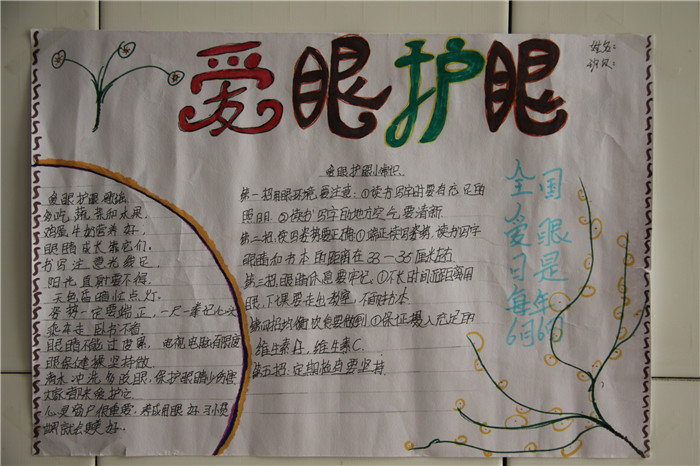 爱眼护眼
姓名:
班级:
爱眼护眼歌谣
多吃蔬菜和水果,
鸡蛋牛奶营养好,
眼睛成长靠它们,
书写注意光线足
阳光直射要不得,
天色昏暗忙点灯.
姿势一定要端正,一尺一拳记心头
乘车走路书不看,
眼睛不能过疲累,电视电脑有限度
眼保健操坚持做.
清水冲洗多护眼,保护眼睛少伤害
大家都来爱护它
心灵窗户很重要,养成用眼好习惯
爱眼护眼小常识
第一招用眼环境要注意:①读书写字时要有充足的
照明.②读书写字的地方空气要清新.
第二招,读写姿势要正确①端正读写姿势,读书写字
眼睛和书本的距离在33-35厘米左右.
第三招,眼睛休息要牢记,①不长时间近距离用
眼,下课要走出教室,不面对书本.
第四招均衡饮食要做到,①保证摄入充足的
维生素A,维生素C.
第五招:定期检查要坚持.
全国
爱眼
日是
每年
6月6日